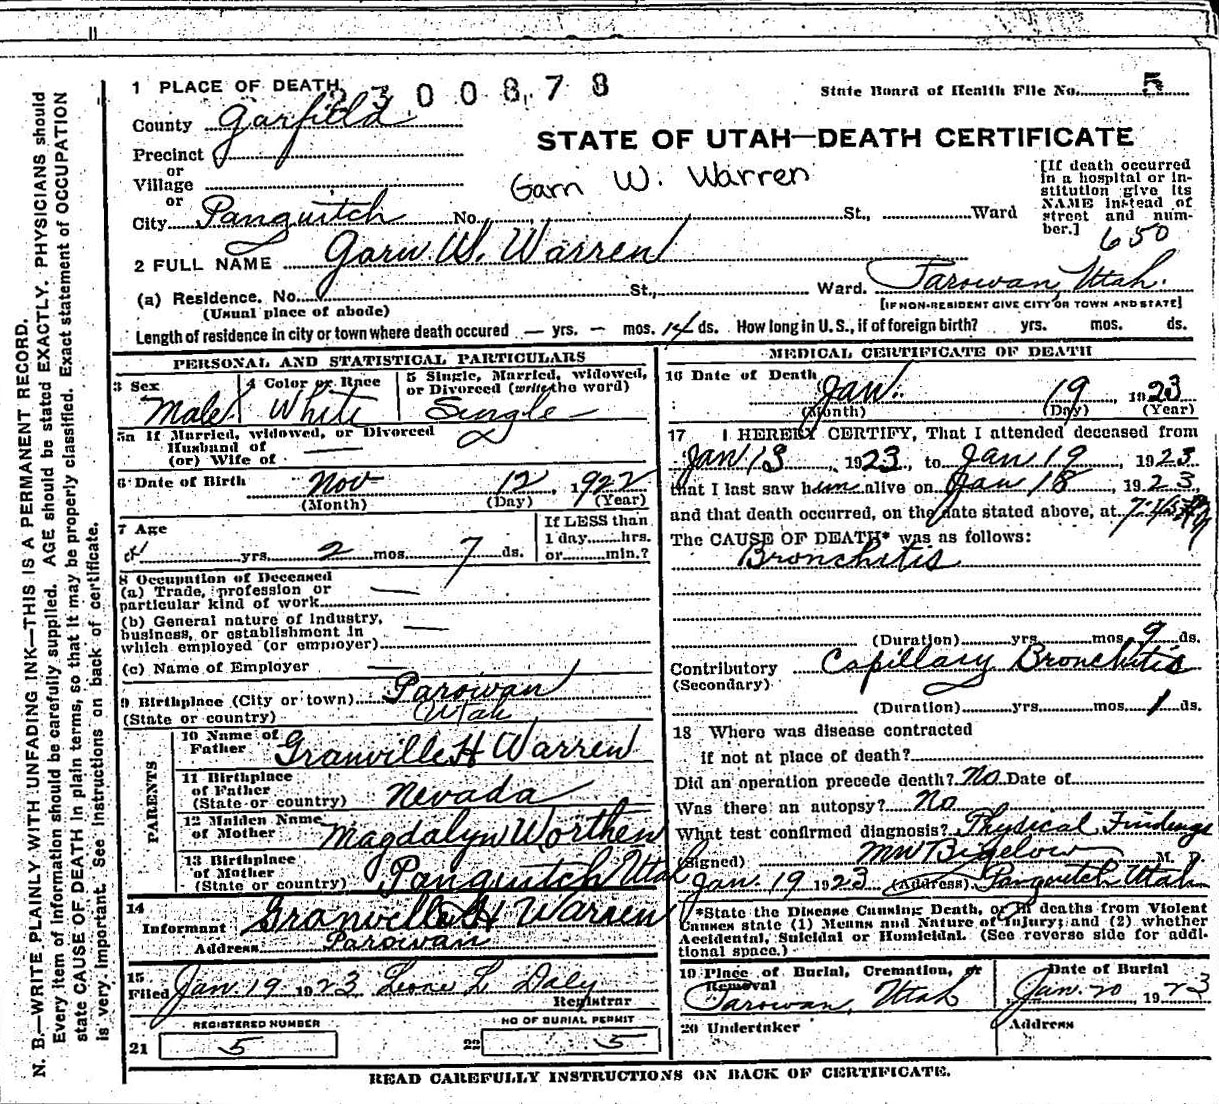 1 PLACE OF DEATH 2300878
State Board of Health File No. 5
County Garfield
STATE OF UTAH—DEATH CERTIFICATE
Precinct
or
Village
Garn W. Warren
[If death occurred in a hospital or institution give its NAME instead of street and number.]
650
or
City Panguitch No. St., Ward
2 FULL NAME Garn W. Warren
(a) Residence. No. St., Ward. Parowan, Utah.
(Usual place of abode) [IF NON-RESIDENT GIVE CITY OR TOWN AND STATE]
Length of residence in city or town where death occured — yrs. — mos. 14 ds. How long in U. S., if of foreign birth? yrs. mos. ds.
PERSONAL AND STATISTICAL PARTICULARS
3 Sex Male
4 Color or Race White
5 Single, Married, widowed, or Divorced (write the word) Single
5a If Married, widowed, or Divorced
Husband of
(or) Wife of —
6 Date of Birth Nov 12, 1922
(Month) (Day) (Year)
7 Age
yrs. 2 mos. 7 ds.
If LESS than 1 day......hrs. or......min.?
8 Occupation of Deceased
(a) Trade, profession or
particular kind of work —
(b) General nature of Industry,
business, or establishment in
which employed (or employer) —
(c) Name of Employer —
9 Birthplace (City or town) Parowan
(State or country) Utah
PARENTS
10 Name of Father Granville H Warren
11 Birthplace of Father (State or country) Nevada
12 Maiden Name of Mother Magdalyn Worthen
13 Birthplace of Mother (State or country) Panguitch Utah
14
Informant Granville H Warren
Address Parowan
15
Filed Jan. 19 1923 Leone L Daly
Registrar
REGISTERED NUMBER
21 5
NO OF BURIAL PERMIT
22 5
MEDICAL CERTIFICATE OF DEATH
16 Date of Death Jan. 19 1923
(Month) (Day) (Year)
17 I HEREBY CERTIFY, That I attended deceased from
Jan 13, 1923, to Jan 19, 1923
that I last saw him alive on Jan 18, 1923,
and that death occurred, on the date stated above, at
The CAUSE OF DEATH* was as follows:
Bronchitis
(Duration) yrs. mos. 9 ds.
Contributory Capillary Bronchitis
(Secondary)
(Duration) yrs. mos. 1 ds.
18 Where was disease contracted
if not at place of death?
Did an operation precede death? No Date of
Was there an autopsy? No
What test confirmed diagnosis? Physical Findings
(Signed) MW Bigelow M. D.
Jan. 19 1923 (Address) Panguitch Utah
*State the Disease Causing Death, or in deaths from Violent
Causes state (1) Means and Nature of Injury; and (2) whether
Accidental, Suicidal or Homicidal. (See reverse side for additional space.)
19 Place of Burial, Cremation, or Removal Parowan, Utah
Date of Burial Jan. 20, 1923
20 Undertaker
Address
READ CAREFULLY INSTRUCTIONS ON BACK OF CERTIFICATE.
N. B.—WRITE PLAINLY WITH UNFADING INK—THIS IS A PERMANENT RECORD.
Every item of information should be carefully supplied. AGE should be stated EXACTLY. PHYSICIANS should
state CAUSE OF DEATH in plain terms, so that it may be properly classified. Exact statement of OCCUPATION
is very important. See instructions on back of certificate.